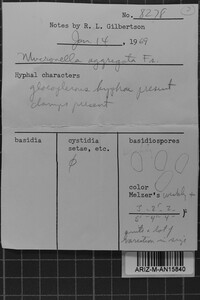 No. 8278
Notes by R. L. Gilbertson
Jan 14, 1969
Mucronella aggregata Fr.
Hyphal characters
gloeoplerous hyphae present
clamps present
basidia
cystidia
setae, etc.
basidiospores
color
Melzer's
µ
quite a bit of
variation in size
ARIZ-M-AN15840